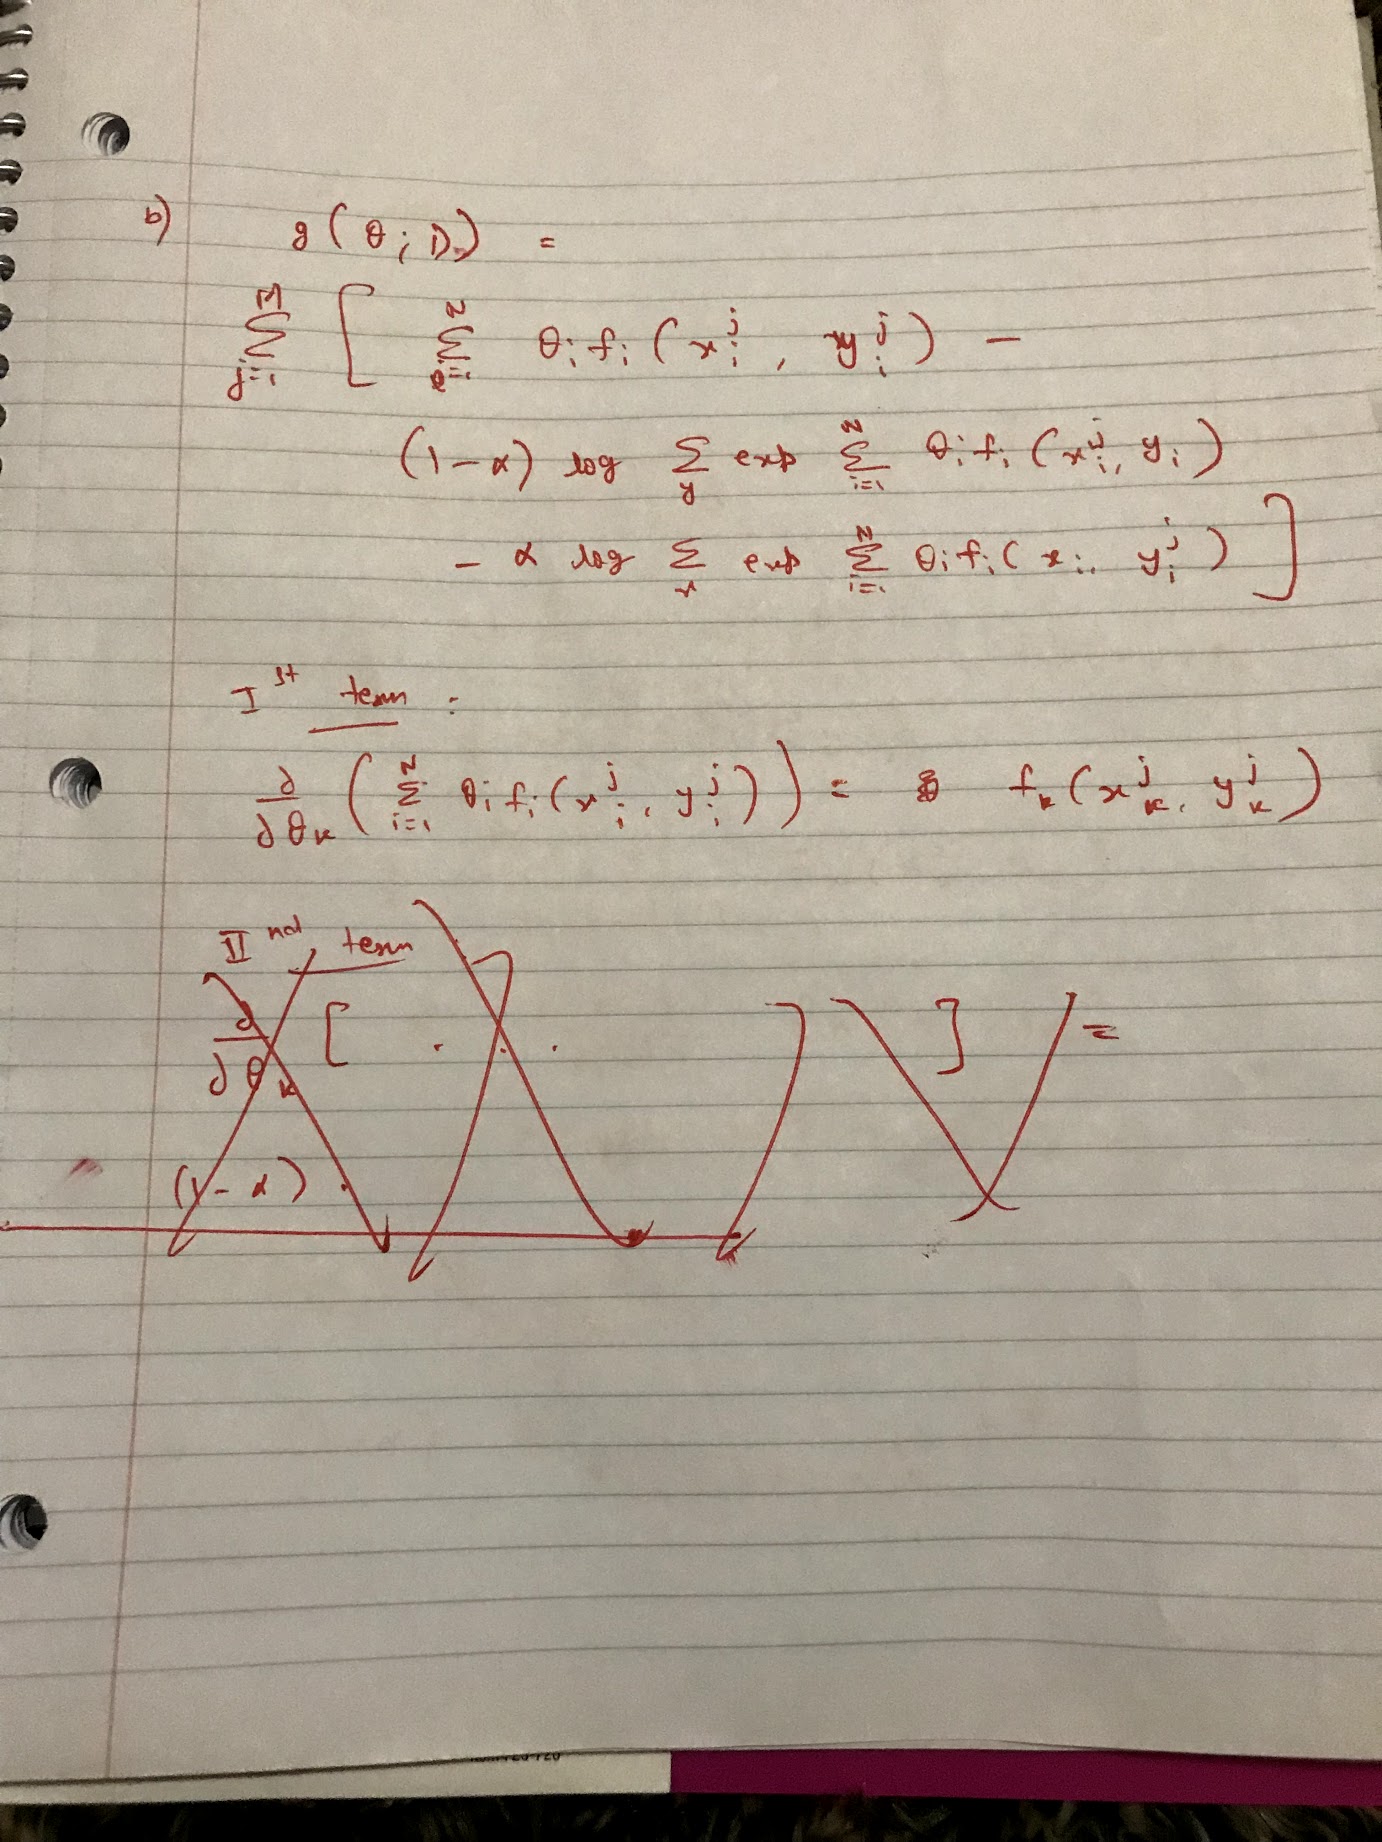 b) g(θ; D) =
∑_{j=1}^{M} [ ∑_{i=1}^{N} θ_i f_i (x_i^j, y_i^j) −
(1−α) log ∑_y exp ∑_{i=1}^{N} θ_i f_i (x_i^j, y_i)
− α log ∑_x exp ∑_{i=1}^{N} θ_i f_i (x_i, y_i^j) ]
I^st term :
∂/∂θ_k ( ∑_{i=1}^{N} θ_i f_i (x_i^j, y_i^j) ) = f_k (x_k^j, y_k^j)
II^nd term
∂/∂θ_k [ . . . ] =
(1−α) .